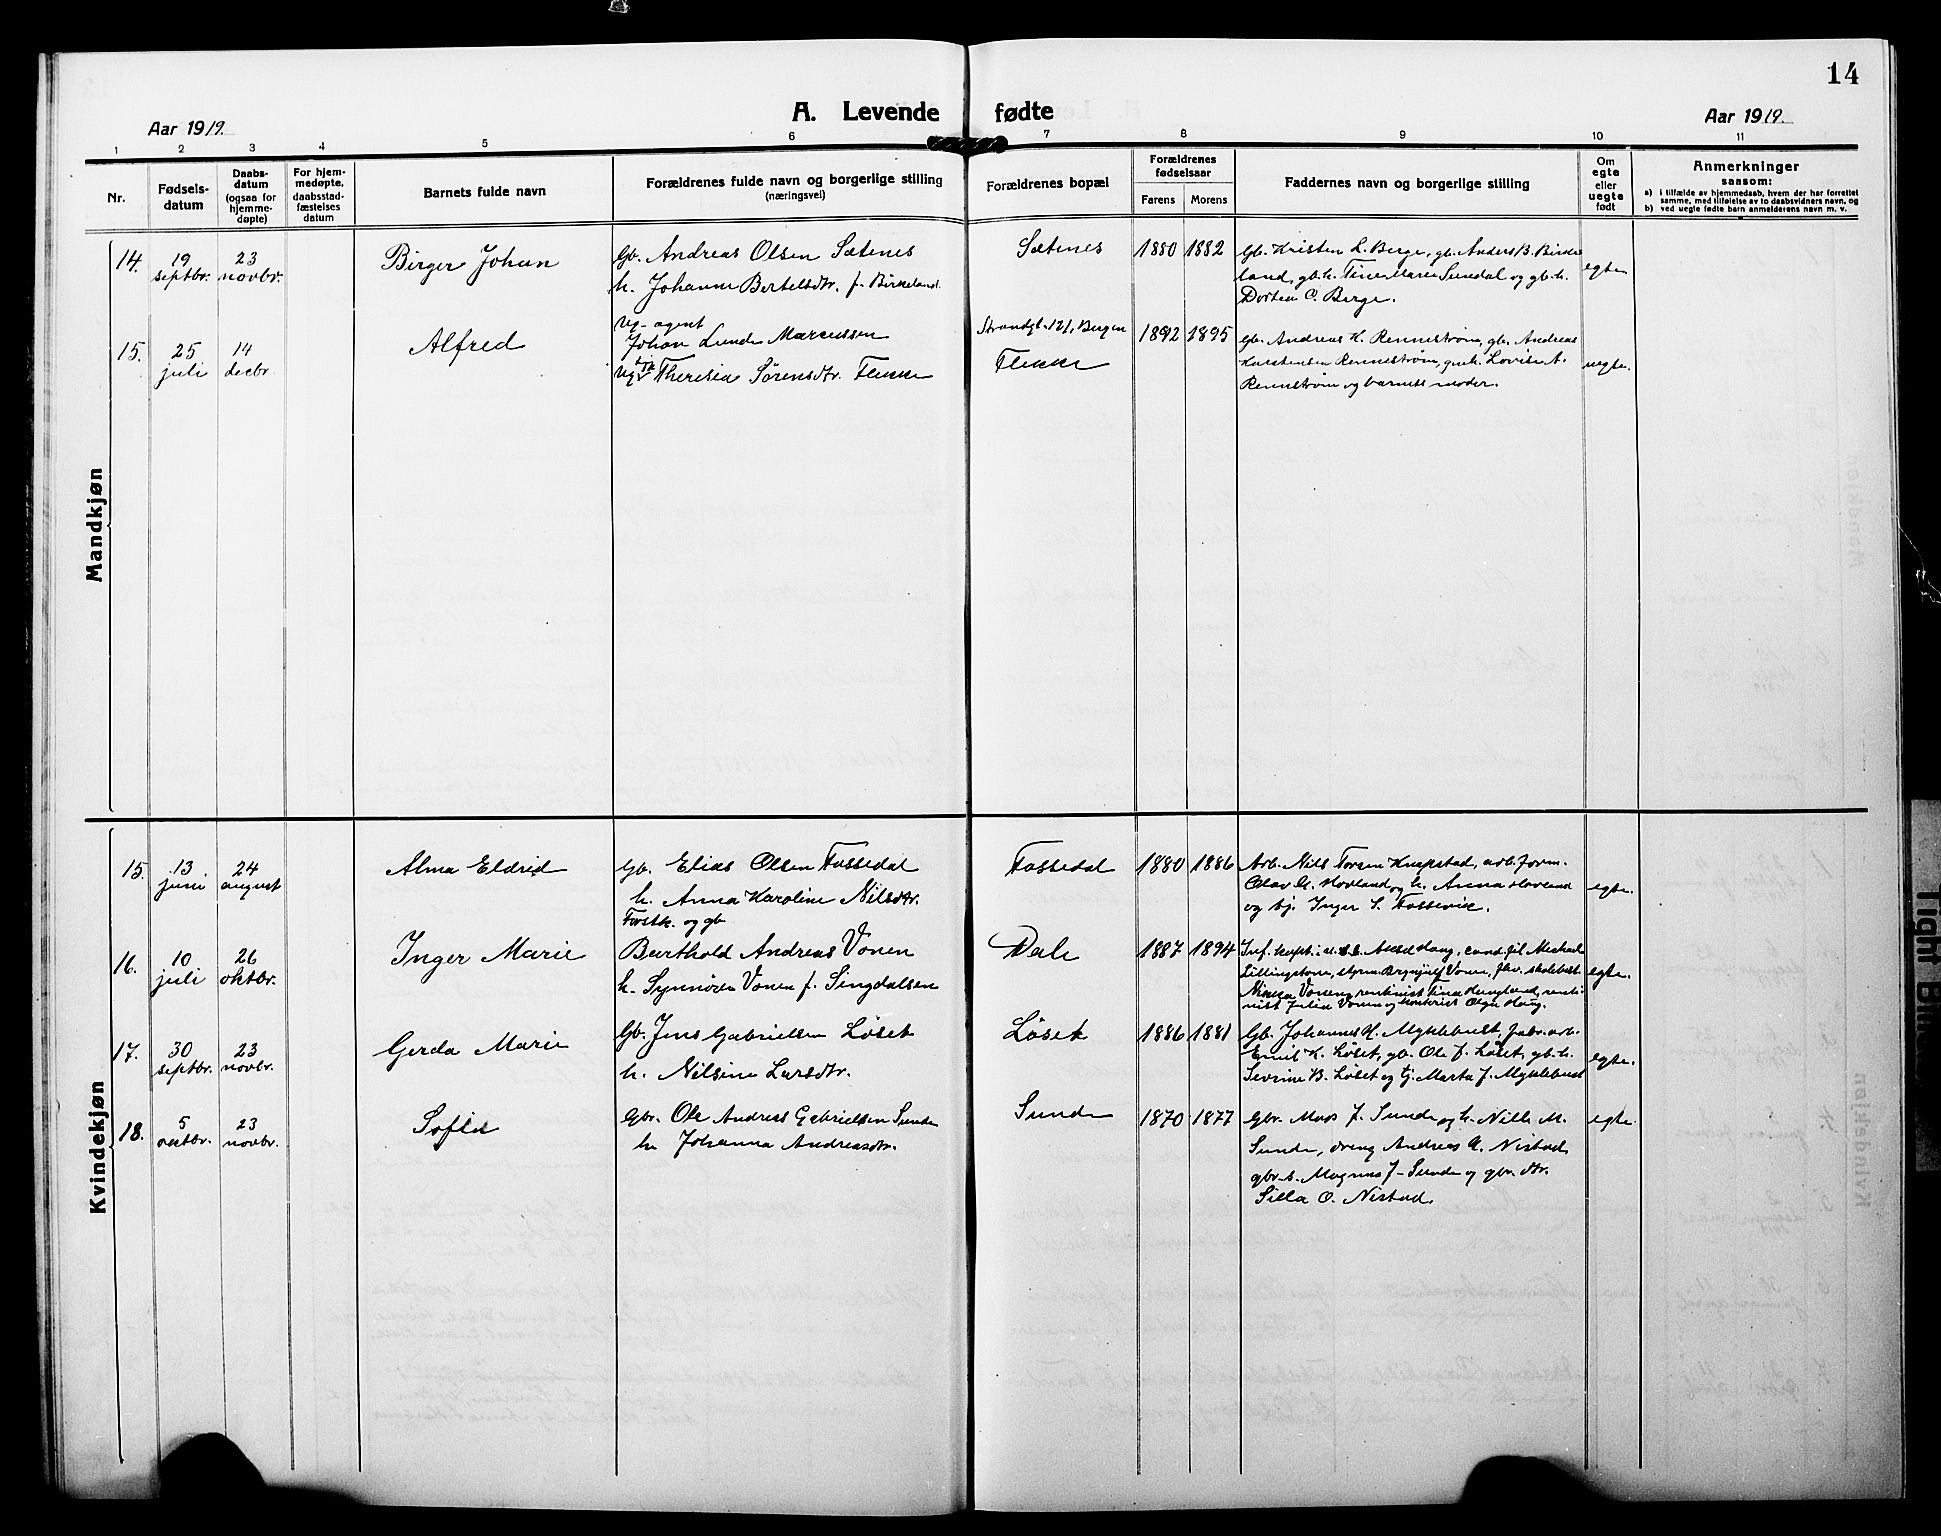 14
A. Levende fødte
Aar 1919.
Aar 1919.
1 2 3 4 5 6 7 8 9 10 11
Nr.
Fødsels-
datum
Daabs-
datum
(ogsaa for
hjemme-
døpte)
For hjem-
medøpte,
daabsstad-
fæstelses
datum
Barnets fulde navn
Forældrenes fulde navn og borgerlige stilling
(næringsvei)
Forældrenes bopæl
Forældrenes
fødselsaar
Farens Morens
Faddernes navn og borgerlige stilling
Om
egte
eller
uegte
født
Anmerkninger
saasom:
a) i tilfælde av hjemmedaab, hvem der har forrettet
samme, med tilføielse av to daabsvidners navn, og
b) ved uegte fødte barn anmelderens navn m. v.
Mandkjøn
14.
19
septbr.
23
novbr.
Birger Johan
Gb. Andreas Olsen Sætenes
h. Johanne Bertelsdtr. f. Birkeland
Sætenes
1880 1882
Gb. Kristen L. Berge, gb. Anders B. Birke
land, gb. h. Tine Marie Sundal og gb. h.
Dortea C. Berge.
egte
15.
25
juli
14
decbr
Alfred
Ug. agent
Johan Lunde Marcussen
Theresia Sørensdtr. Flekke
Strandgt. 121, Bergen
Flekke
1892 1895
Gb. Andreas K. Rennestrøm, gb. Andreas
Karstensen Rennestrøm, Lovise A.
Rennestrøm og barnets moder.
uegte.
Kvindekjøn
15.
13
juni
24
august
Alma Eldrid
Gb. Elias Olsen Fossedal
h. Anna Karoline Nilsdtr.
Fossedal
1880 1886
Arb. Nils Torsen Knapstad, arb. form.
Olav M. Hovland og h. Anna Hovland
og tj. Inger S. Fossevik.
egte.
16.
10
juli
26
oktbr.
Inger Marie
Forstk. og gb
Barthold Andreas Vonen
h. Synnøve Vonen f. Singdalsen
Dale
1887 1894
Inf. kapt. Haug, cand. fil. Michael
Lillingstone, styrm. Brynjulf Vonen, skolebest.
Vonen, rentenist Tina Haugland, rente-
nist Julia Vonen og kontorist Olga Haug.
egte.
17.
30
septbr.
23
novbr.
Gerda Marie
Gb. Jens Gabrielsen Løset
h. Nilsine Larsdtr.
Løset
1886 1881
Gb. Johannes H. Myklebust, fabr. arb.
Emil K. Løset, gb. Ole J. Løset, gb. h.
Severine B. Løset og tj. Marta J. Myklebust
egte.
18.
5
oktbr.
23
novbr.
Sofia
Gbr. Ole Andreas Gabrielsen Sunde
h. Johanna Andreasdtr.
Sunde
1870 1877
Gbr. Mons J. Sunde og h. Nille M.
Sunde, dreng Andreas A. Nistad,
gbr. s. Magnus J. Sunde og gbr. dtr.
Silla O. Nistad.
egte.
Tight